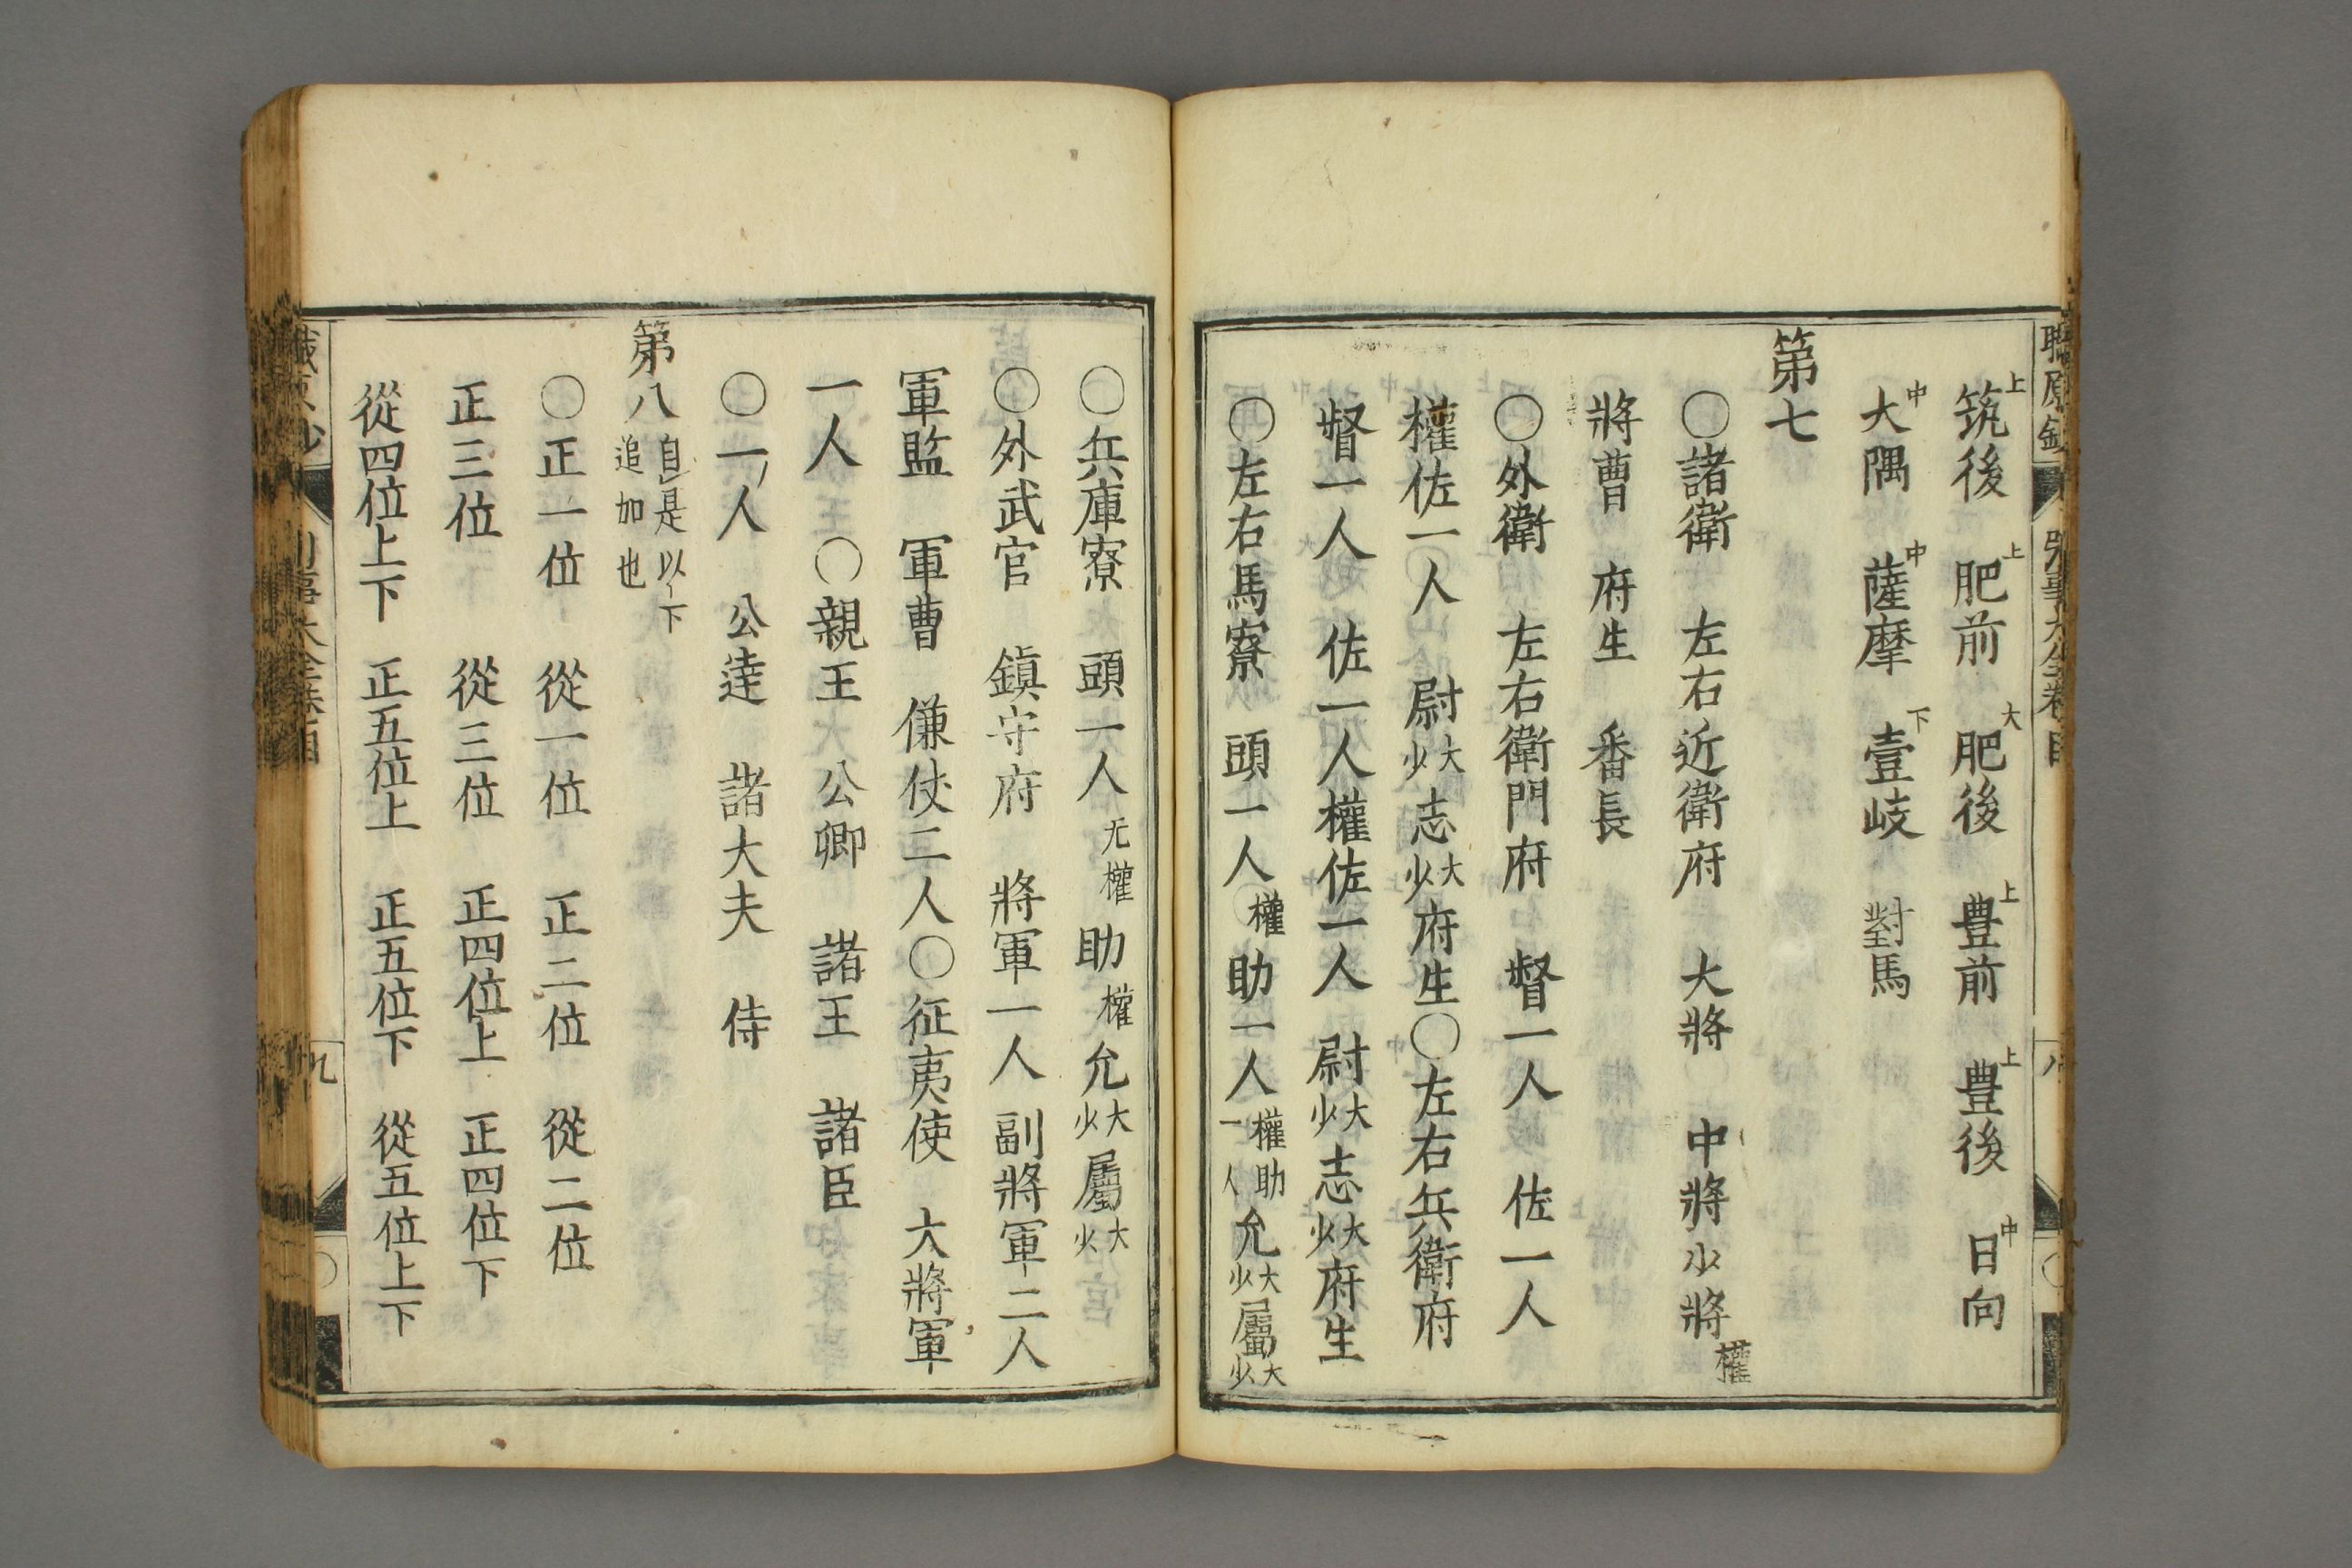 上筑後 上肥前 大肥後 上豊前 上豊後 中日向
中大隅 中薩摩 下壹岐 對馬
第七
〇諸衛 左右近衛府 大將 中將少將權
將曹 府生 番長
〇外衛 左右衛門府 督一人 佐一人
權佐一人 尉大少志大少府生〇左右兵衛府
督一人 佐一人權佐一人 尉大少志大少府生
〇左右馬寮 頭一人權助一人權助一人允大少屬大少
〇兵庫寮 頭一人无權助權允大少屬大少
〇外武官 鎮守府 將軍一人 副將軍二人
軍監 軍曹 傔仗二人〇征夷使 大將軍
一人 〇親王 公卿 諸王 諸臣
〇一人 公達 諸大夫 侍
第八自是以下追加也
〇正一位 從一位 正二位 從二位
正三位 從三位 正四位上 正四位下
從四位上下 正五位上 正五位下 從五位上下
九